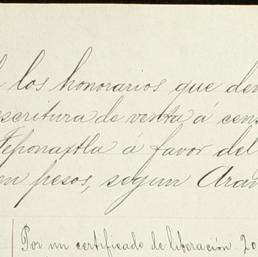 los honorarios que de
escritura de venta á cens
Teponaxtla á favor del
en pesos, segun Aran
Por un certificado de liberación 20